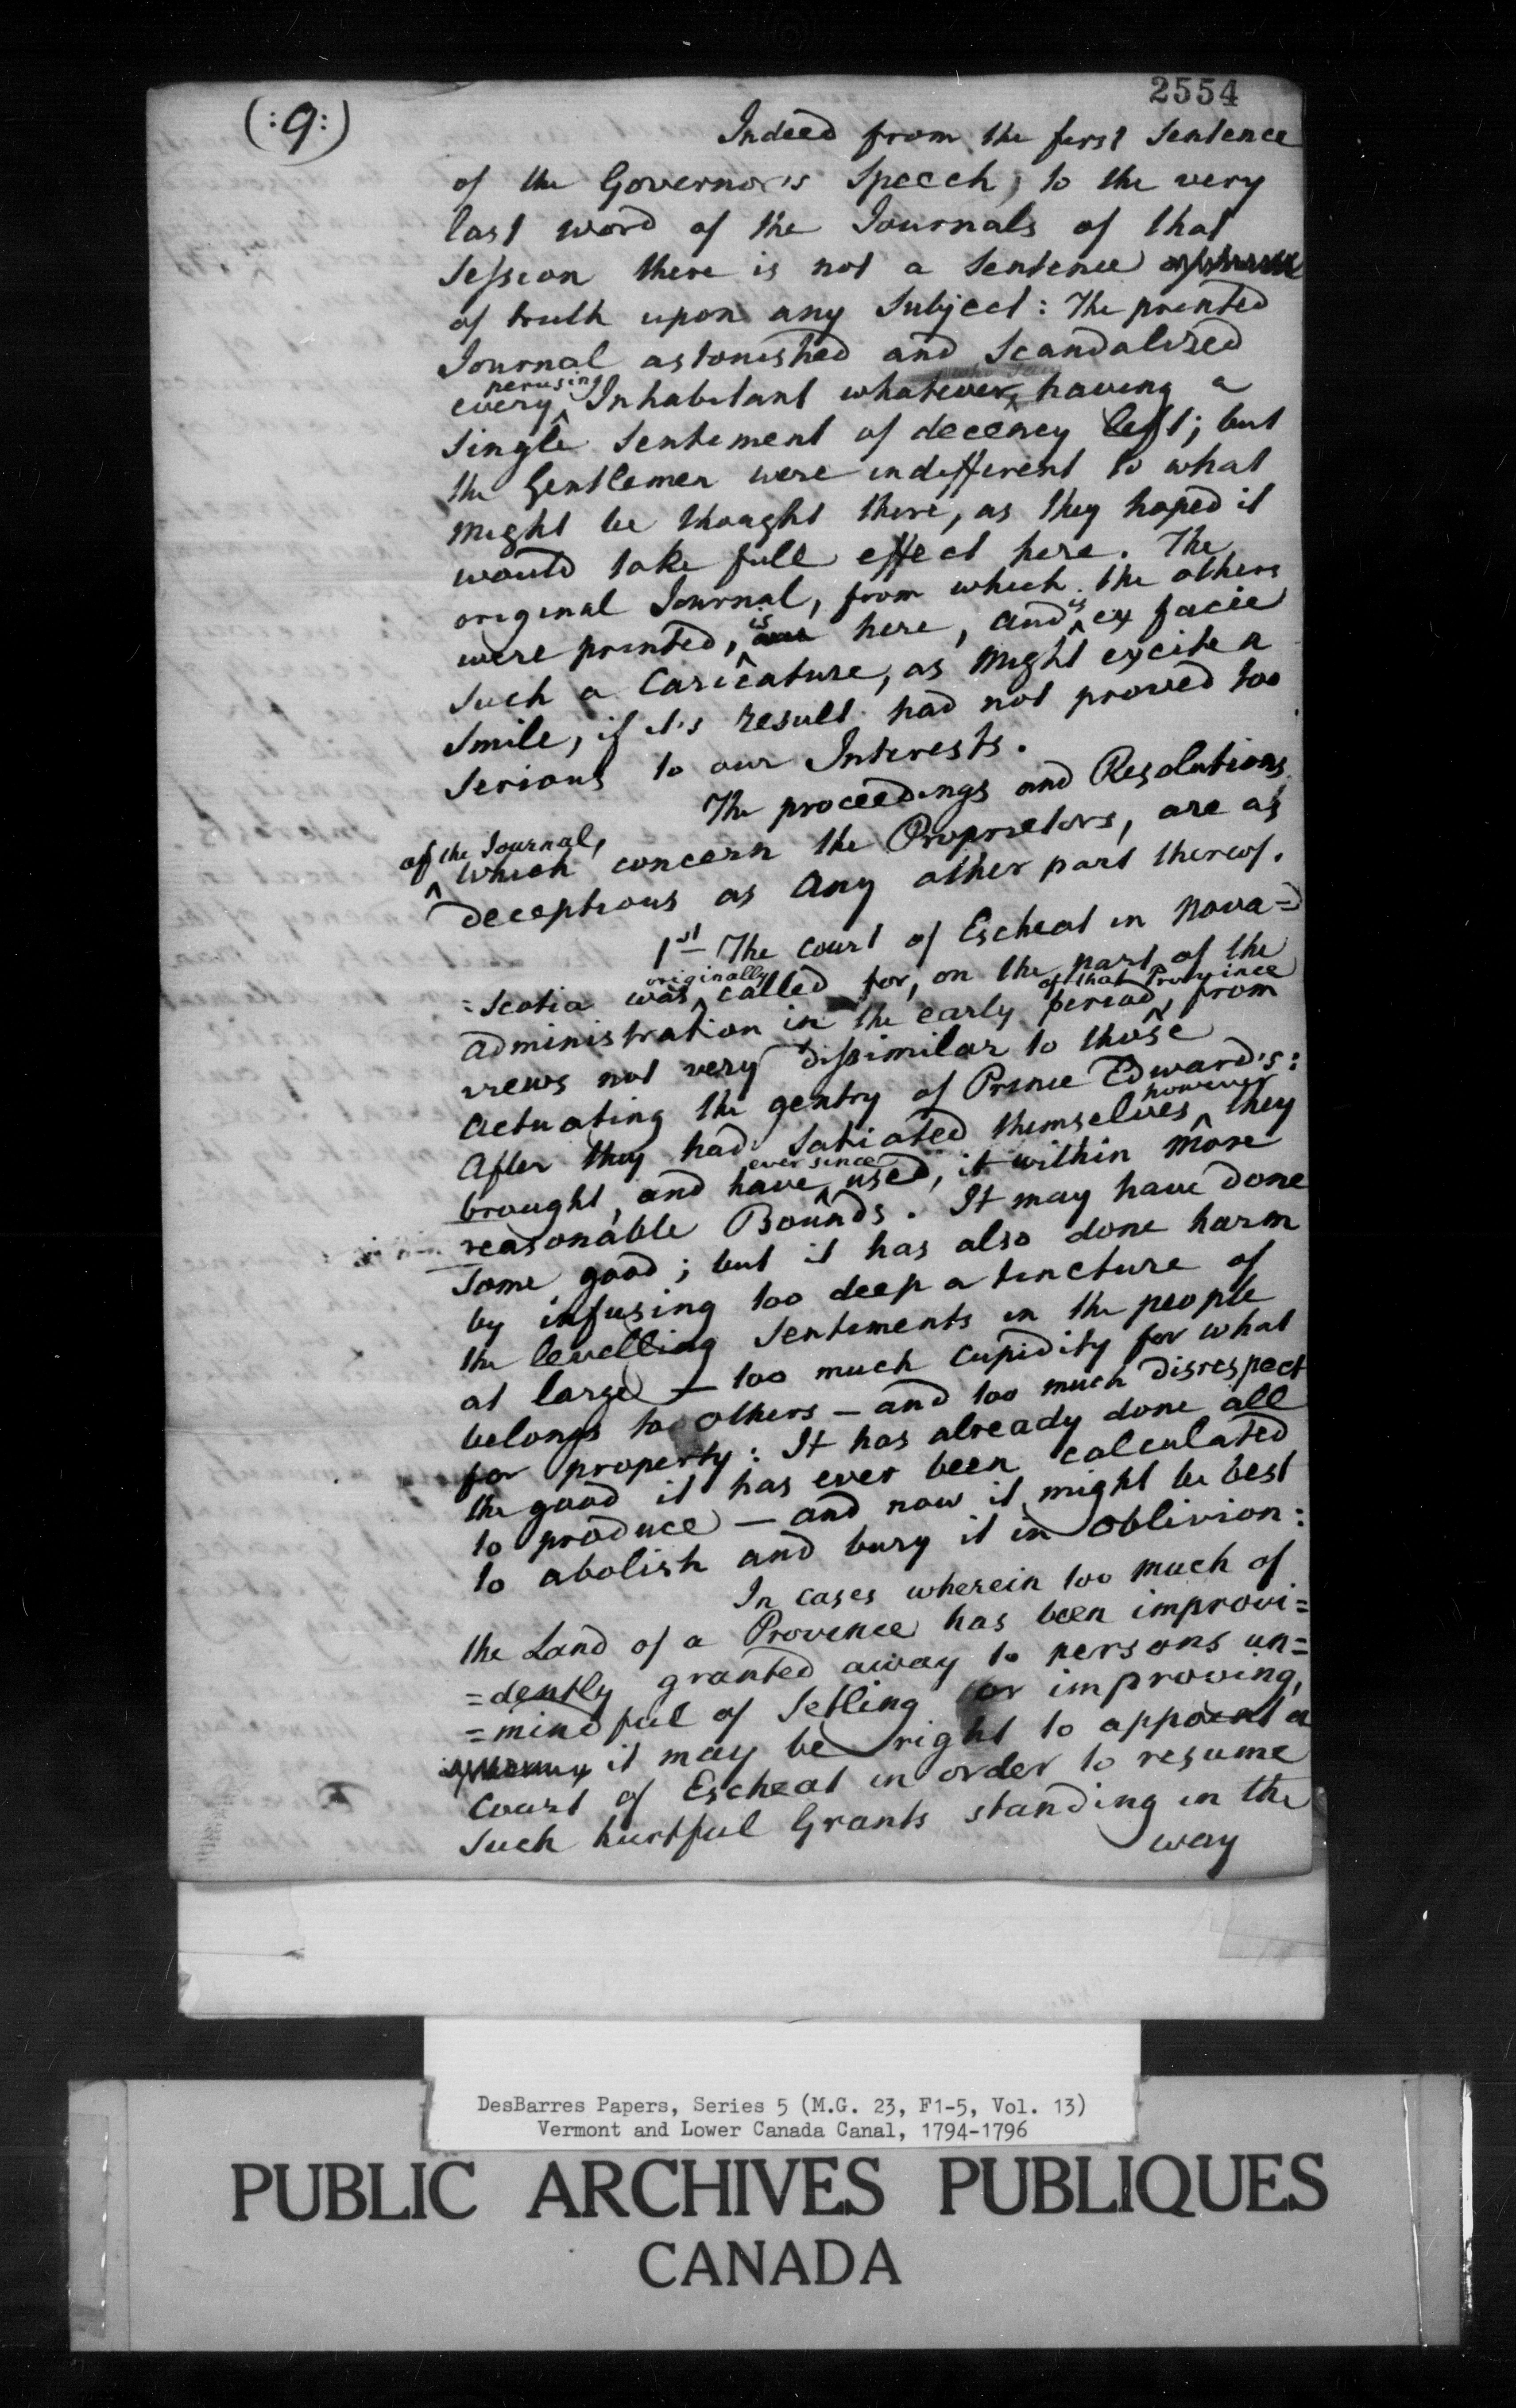 2554
(:9:)
Indeed from the first Sentence
of the Governor's Speech, to the very
last word of the Journals of that
Session there is not a Sentence
of truth upon any Subject: The printed
Journal astonished and Scandalized
every perusing Inhabitant whatever, having a
Single Sentiment of decency left; but
the Gentlemen were indifferent to what
might be thought there, as they hoped it
would take full effect here. The
original Journal, from which the others
were printed, is here, and is ex facie
such a Caricature, as might excite a
Smile, if it's result had not proved too
Serious to our Interests.
The proceedings and Resolutions
of the Journal,
which concern the Proprietors, are as
deceptious as any other part thereof.
1st The Court of Escheat in Nova=
=Scotia was originally called for, on the part of the
administration in the early period of that Province, from
views not very dissimilar to those
actuating the gentry of Prince Edward's:
After they had satiated themselves however they
brought, and have ever since used, it within more
reasonable Bounds. It may have done
some good; but it has also done harm
by infusing too deep a tincture of
the levelling Sentiments in the people
at large — too much cupidity for what
belongs to others — and too much disrespect
for property: It has already done all
the good it has ever been calculated
to produce — and now it might be best
to abolish and bury it in oblivion:
In cases wherein too much of
the Land of a Province has been improvi=
=dently granted away to persons un=
=mindful of Setling or improving,
it may be right to appoint a
Court of Escheat in order to resume
such hurtful Grants standing in the
way
DesBarres Papers, Series 5 (M.G. 23, F1-5, Vol. 13)
Vermont and Lower Canada Canal, 1794-1796
PUBLIC ARCHIVES PUBLIQUES
CANADA